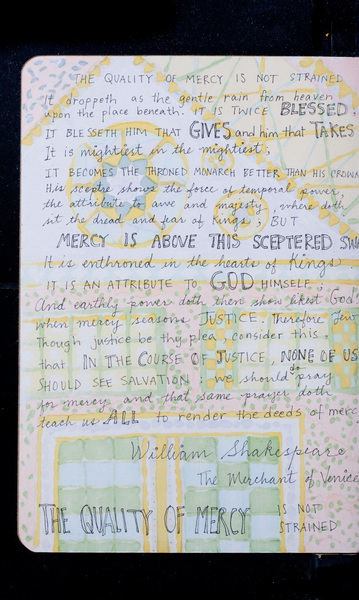 THE QUALITY OF MERCY IS NOT STRAINED
It droppeth as the gentle rain from heaven
upon the place beneath. IT IS TWICE BLESSED;
IT BLESSETH HIM THAT GIVES and him that TAKES
It is mightiest in the mightiest;
IT BECOMES THE THRONED MONARCH BETTER THAN HIS CROWN
His sceptre shows the force of temporal power,
the attribute to awe and majesty, where doth
sit the dread and fear of Kings; BUT
MERCY IS ABOVE THIS SCEPTERED SWA
It is enthroned in the hearts of Kings
IT IS AN ATTRIBUTE TO GOD HIMSELF;
And earthly power doth then show likest God's
when mercy seasons JUSTICE. Therefore Jew
Though justice be thy plea, consider this,
that IN THE COURSE OF JUSTICE, NONE OF US
SHOULD SEE SALVATION: we should do pray
for mercy and that same prayer doth
teach us ALL to render the deeds of merc
William Shakespeare
The Merchant of Venice
THE QUALITY OF MERCY IS NOT
STRAINED